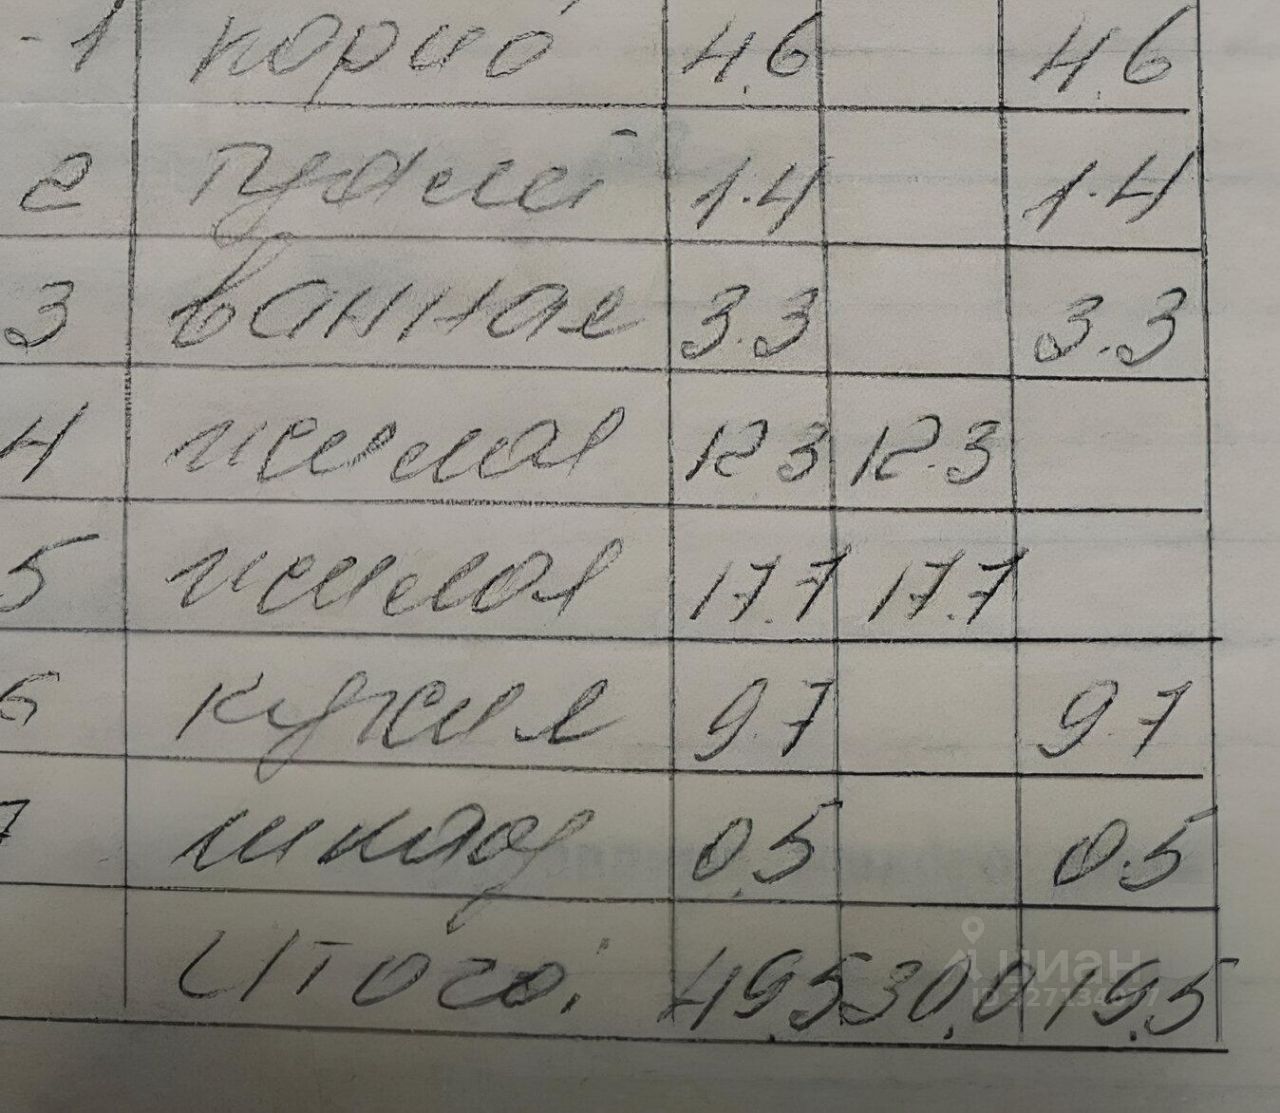 -1 корид 4.6 4.6
2 туалет 1.4 1.4
3 ванная 3.3 3.3
4 жилая 12.3 12.3
5 жилая 17.7 17.7
6 кухня 9.7 9.7
7 шкаф 0.5 0.5
Итого: 49.5 30.0 19.5
циан